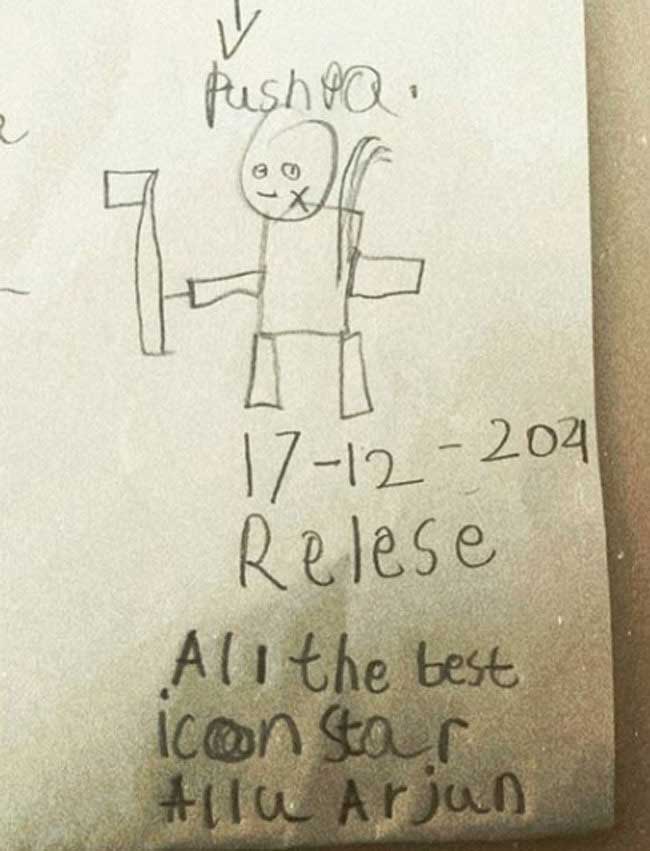 PushPa.
17-12-2021
Relese
All the best
icon star
Allu Arjun